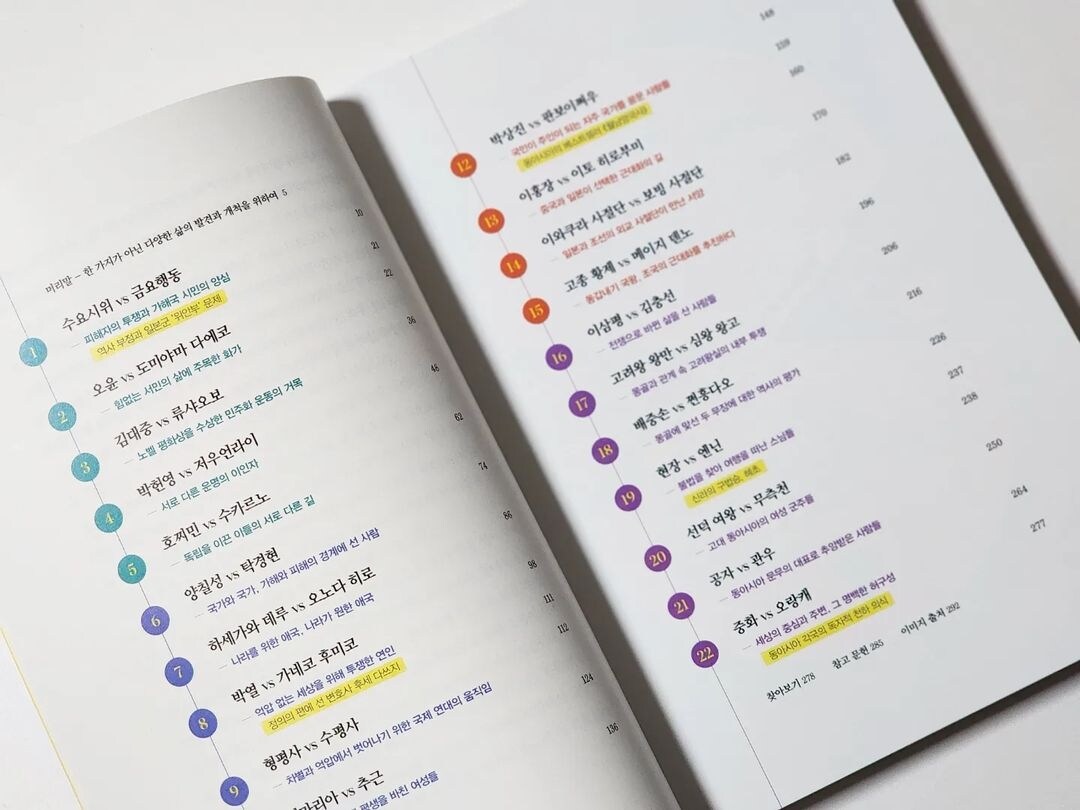 머리말 – 한 가지가 아닌 다양한 삶의 발견과 개척을 위하여 5
1 수요시위 vs 금요행동 10
— 피해자의 투쟁과 가해국 시민의 양심
역사 부정과 일본군 '위안부' 문제 21
2 오윤 vs 도미야마 다에코 22
— 힘없는 서민의 삶에 주목한 화가
3 김대중 vs 류샤오보 36
— 노벨 평화상을 수상한 민주화 운동의 거목
4 박헌영 vs 저우언라이 46
— 서로 다른 운명의 이인자
5 호찌민 vs 수카르노 62
— 독립을 이끈 이들의 서로 다른 길
6 양칠성 vs 탁경현 74
— 국가와 국가, 가해와 피해의 경계에 선 사람
7 하세가와 데루 vs 오노다 히로 86
— 나라를 위한 애국, 나라가 원한 애국
8 박열 vs 가네코 후미코 98
— 억압 없는 세상을 위해 투쟁한 연인
정의의 편에 선 변호사 후세 다쓰지 111
9 형평사 vs 수평사 112
— 차별과 억압에서 벗어나기 위한 국제 연대의 움직임
마리아 vs 추근 124
평생을 바친 여성들
136
12 박상진 vs 판보이쩌우 148
— 국민이 주인이 되는 자주 국가를 꿈꾼 사람들
동아시아의 베스트셀러 《월남망국사》 159
13 이홍장 vs 이토 히로부미 160
— 중국과 일본이 선택한 근대화의 길
14 이와쿠라 사절단 vs 보빙 사절단 170
— 일본과 조선의 외교 사절단이 만난 서양
15 고종 황제 vs 메이지 덴노 182
— 동갑내기 국왕, 조국의 근대화를 추진하다
16 이삼평 vs 김충선 196
— 전쟁으로 바뀐 삶을 산 사람들
17 고려왕 왕만 vs 심왕 왕고 206
— 몽골과 관계 속 고려왕실의 내부 투쟁
18 배중손 vs 쩐흥다오 216
— 몽골에 맞선 두 무장에 대한 역사의 평가
19 현장 vs 엔닌 226
— 불법을 찾아 여행을 떠난 스님들
신라의 구법승, 혜초 237
20 선덕 여왕 vs 무측천 238
— 고대 동아시아의 여성 군주들
21 공자 vs 관우 250
— 동아시아 문무의 대표로 추앙받은 사람들
22 중화 vs 오랑캐 264
— 세상의 중심과 주변, 그 명백한 허구성
동아시아 각국의 독자적 천하 의식 277
찾아보기 278 참고 문헌 285 이미지 출처 292